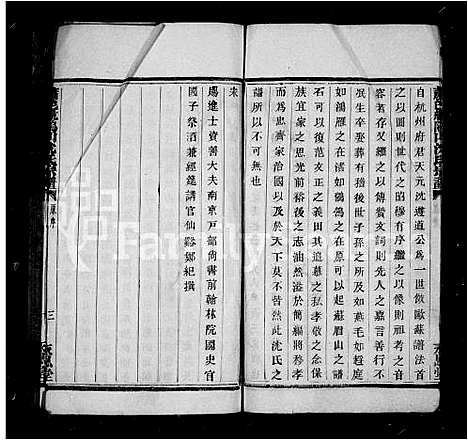 自杭州府君天元沈遵道公為一世倣歐蘇譜法首
之以圖則世代之昭穆有序繼之以像則祖考之音
容若存又繼之以傳贊文詞則先人之嘉言善行不
泯生卒娶葬有稽世子孫之所及如燕毛如庭
如鴻雁之于如鶺鴒之在原可以起蘇眉山之譜
石可以復范文正之義田其追慕之私孝敬之
族宜家之思光前裕後之志油然溢於簡編將移孝
而為忠齊家治國以及于天下莫不由此沈氏之
譜所以不
朱
賜進士資善大夫南京戶部尚書前翰林院國史官
國子祭酒兼經筵講官仙谿鄭紀撰
三